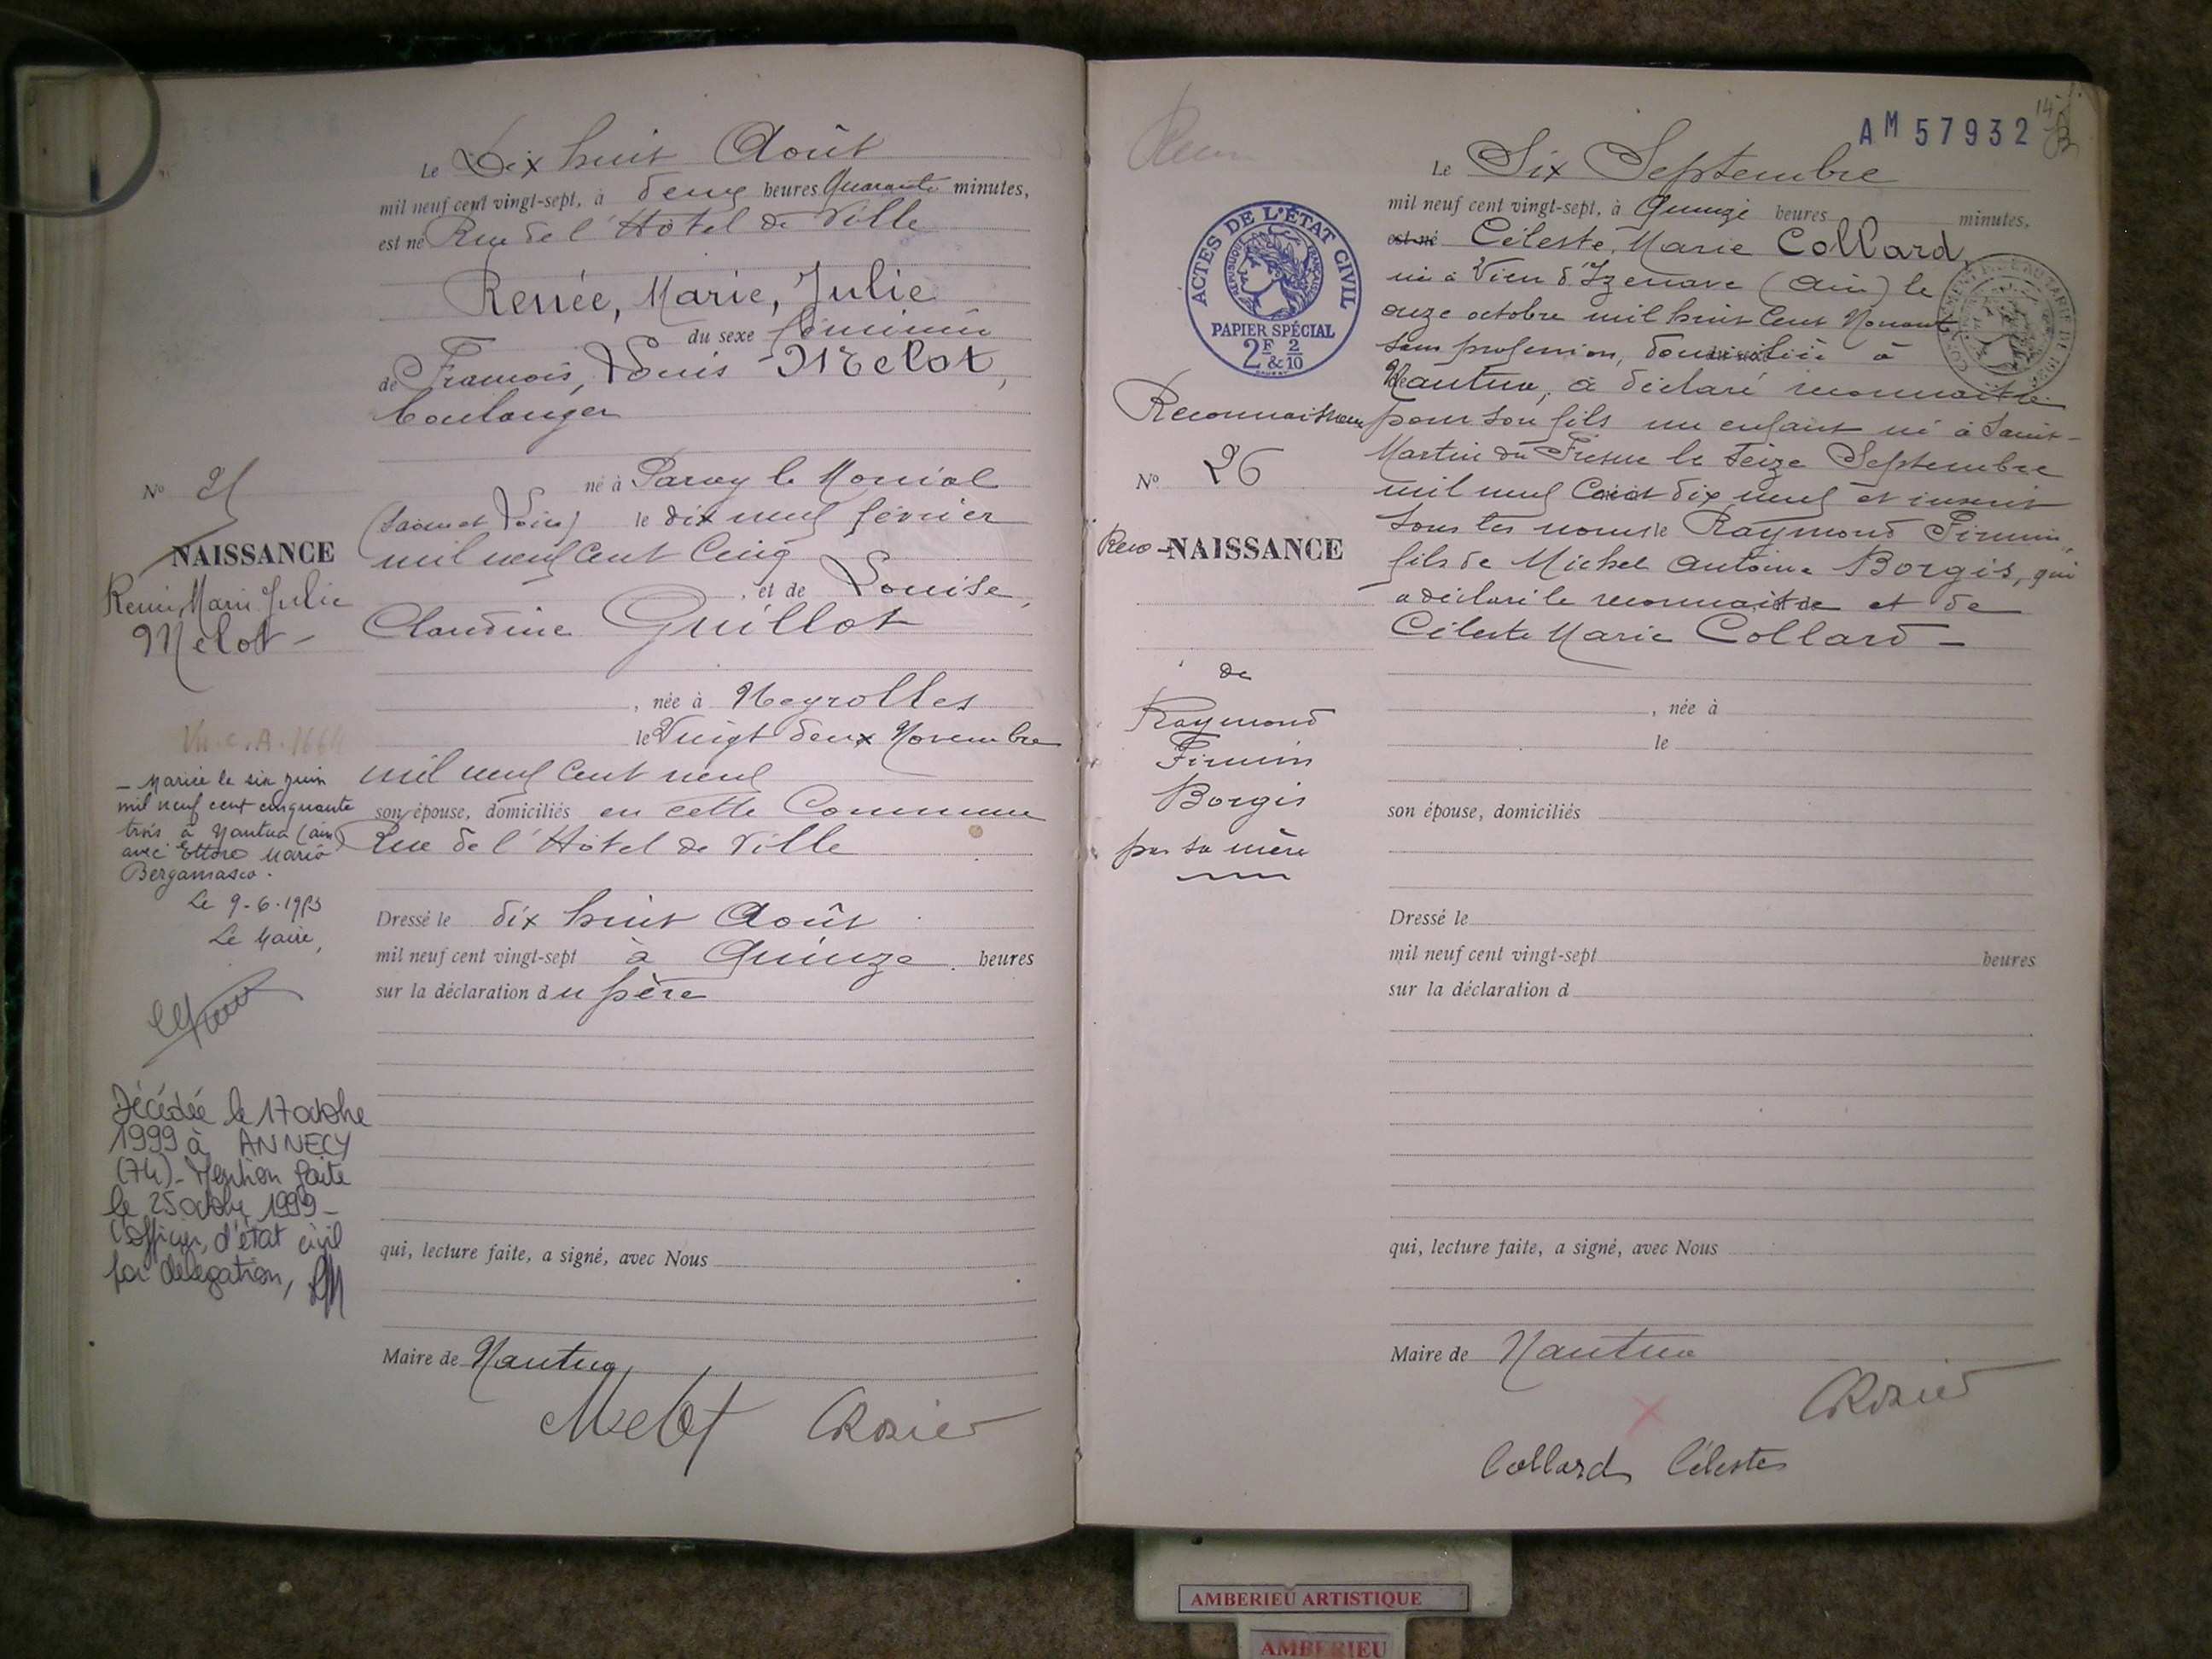 Le Dix huit Août
mil neuf cent vingt-sept, à deux heures Quarante minutes,
est né Rue de l'Hôtel de Ville
Renée, Marie, Julie
du sexe féminin
de François, Louis Melot,
boulanger
né à Paray le Monial
(Saône et Loire) le dix neuf février
mil neuf cent cinq
, et de Louise,
Claudine Guillot
, née à Neyrolles
le Vingt deux Novembre
mil neuf cent neuf
son épouse, domiciliés en cette Commune
Rue de l'Hôtel de Ville
Dressé le dix huit Août
mil neuf cent vingt-sept à Quinze heures
sur la déclaration du père
qui, lecture faite, a signé, avec Nous
Maire de Nantua
Melot Crozier
No 25
NAISSANCE
Renée, Marie Julie
Melot -
- Mariée le six juin
mil neuf cent cinquante
trois à Nantua (ain)
avec Ettore Mario
Bergamasco.
Le 9-6-1953
Le Maire,
Décédée le 17 octobre
1999 à ANNECY
(74) - Mention faite
le 25 octobre 1999 -
L'officier, d'état civil
par délégation,
AM 57932
Le Six Septembre
mil neuf cent vingt-sept, à Quinze heures minutes.
est né Céleste, Marie Collard,
né à Vieu d'Izenave (Ain) le
onze octobre mil huit Cent Nonante
sans profession, domiciliée à
Nantua, a déclaré reconnaitre
pour son fils un enfant né à Saint-
Martin du Fresne le seize Septembre
mil neuf Cent dix neuf et inscrit
sous les noms de Raymond Firmin,
fils de Michel Antoine Borgis, qui
a déclaré le reconnaitre et de
Céleste Marie Collard -
, née à
le
son épouse, domiciliés
Dressé le
mil neuf cent vingt-sept heures
sur la déclaration d
qui, lecture faite, a signé, avec Nous
Maire de Nantua
Crozier
Collard Céleste
ACTES DE L'ÉTAT CIVIL
RÉPUBLIQUE FRANÇAISE
PAPIER SPÉCIAL
2F & 2/10
Reconnaissance
No 26
Reco-NAISSANCE
de
Raymond
Firmin
Borgis
par sa mère
AMBERIEU ARTISTIQUE
AMBERIEU